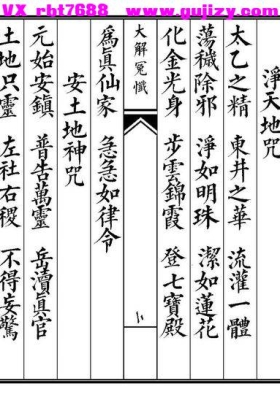 VX_rbt7688 www.gujizy.com
淨天地咒
太乙之精 東井之華 流灌一體
蕩穢除邪 淨如明珠 潔如蓮花
化金光身 步雲錦霞 登七寶殿
大解冤懺
為眞仙家 急急如律令
安土地神咒
元始安鎮 普告萬靈 岳瀆眞官
土地只靈 左社右稷 不得妄驚